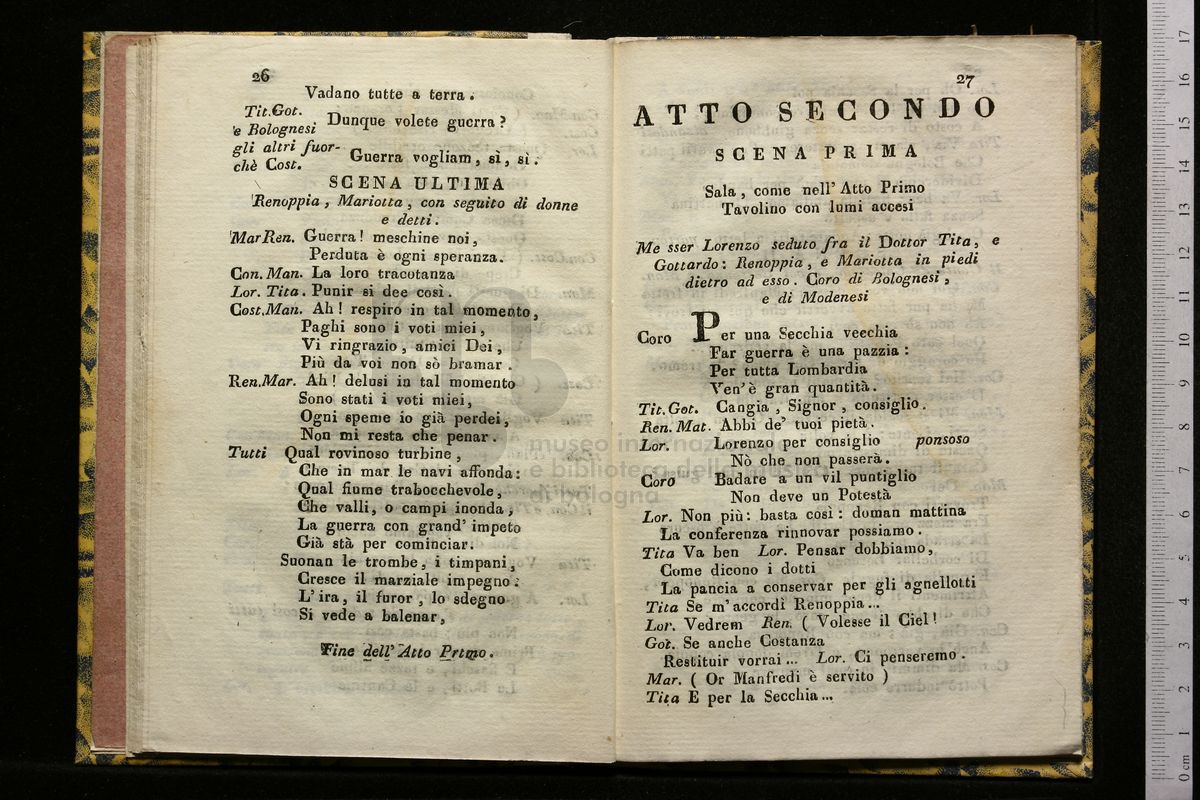 26
Vadano tutte a terra.
Tit.Got.
e Bolognesi Dunque volete guerra?
gli altri fuor-
chè Cost. Guerra vogliam, sì, sì.
SCENA ULTIMA
Renoppia, Mariotta, con seguito di donne
e detti.
Mar Ren. Guerra! meschine noi,
Perduta è ogni speranza.
Con. Man. La loro tracotanza
Lor. Tita. Punir si dee così.
Cost.Man. Ah! respiro in tal momento,
Paghi sono i voti miei,
Vi ringrazio, amici Dei,
Più da voi non sò bramar.
Ren.Mar. Ah! delusi in tal momento
Sono stati i voti miei,
Ogni speme io già perdei,
Non mi resta che penar.
Tutti Qual rovinoso turbine,
Che in mar le navi affonda:
Qual fiume trabocchevole,
Che valli, o campi inonda,
La guerra con grand' impeto
Già stà per cominciar.
Suonan le trombe, i timpani,
Cresce il marziale impegno:
L'ira, il furor, lo sdegno
Si vede a balenar,
Fine dell' Atto Prtmo.
27
ATTO SECONDO
SCENA PRIMA
Sala, come nell' Atto Primo
Tavolino con lumi accesi
Me sser Lorenzo seduto fra il Dottor Tita, e
Gottardo: Renoppia, e Mariotta in piedi
dietro ad esso. Coro di Bolognesi,
e di Modenesi
Coro Per una Secchia vecchia
Far guerra è una pazzia:
Per tutta Lombardia
Ven' è gran quantità.
Tit.Got. Cangia, Signor, consiglio.
Ren. Mat. Abbi de' tuoi pietà.
Lor. Lorenzo per consiglio ponsoso
Nò che non passerà.
Coro Badare a un vil puntiglio
Non deve un Potestà
Lor. Non più: basta così: doman mattina
La conferenza rinnovar possiamo.
Tita Va ben Lor. Pensar dobbiamo,
Come dicono i dotti
La pancia a conservar per gli agnellotti
Tita Se m'accordi Renoppia...
Lor. Vedrem Ren. ( Volesse il Ciel!
Got. Se anche Costanza
Restituir vorrai... Lor. Ci penseremo.
Mar. ( Or Manfredi è servito )
Tita E per la Secchia...
museo internazionale
e biblioteca della musica
di bologna
0 cm 1 2 3 4 5 6 7 8 9 10 11 12 13 14 15 16 17